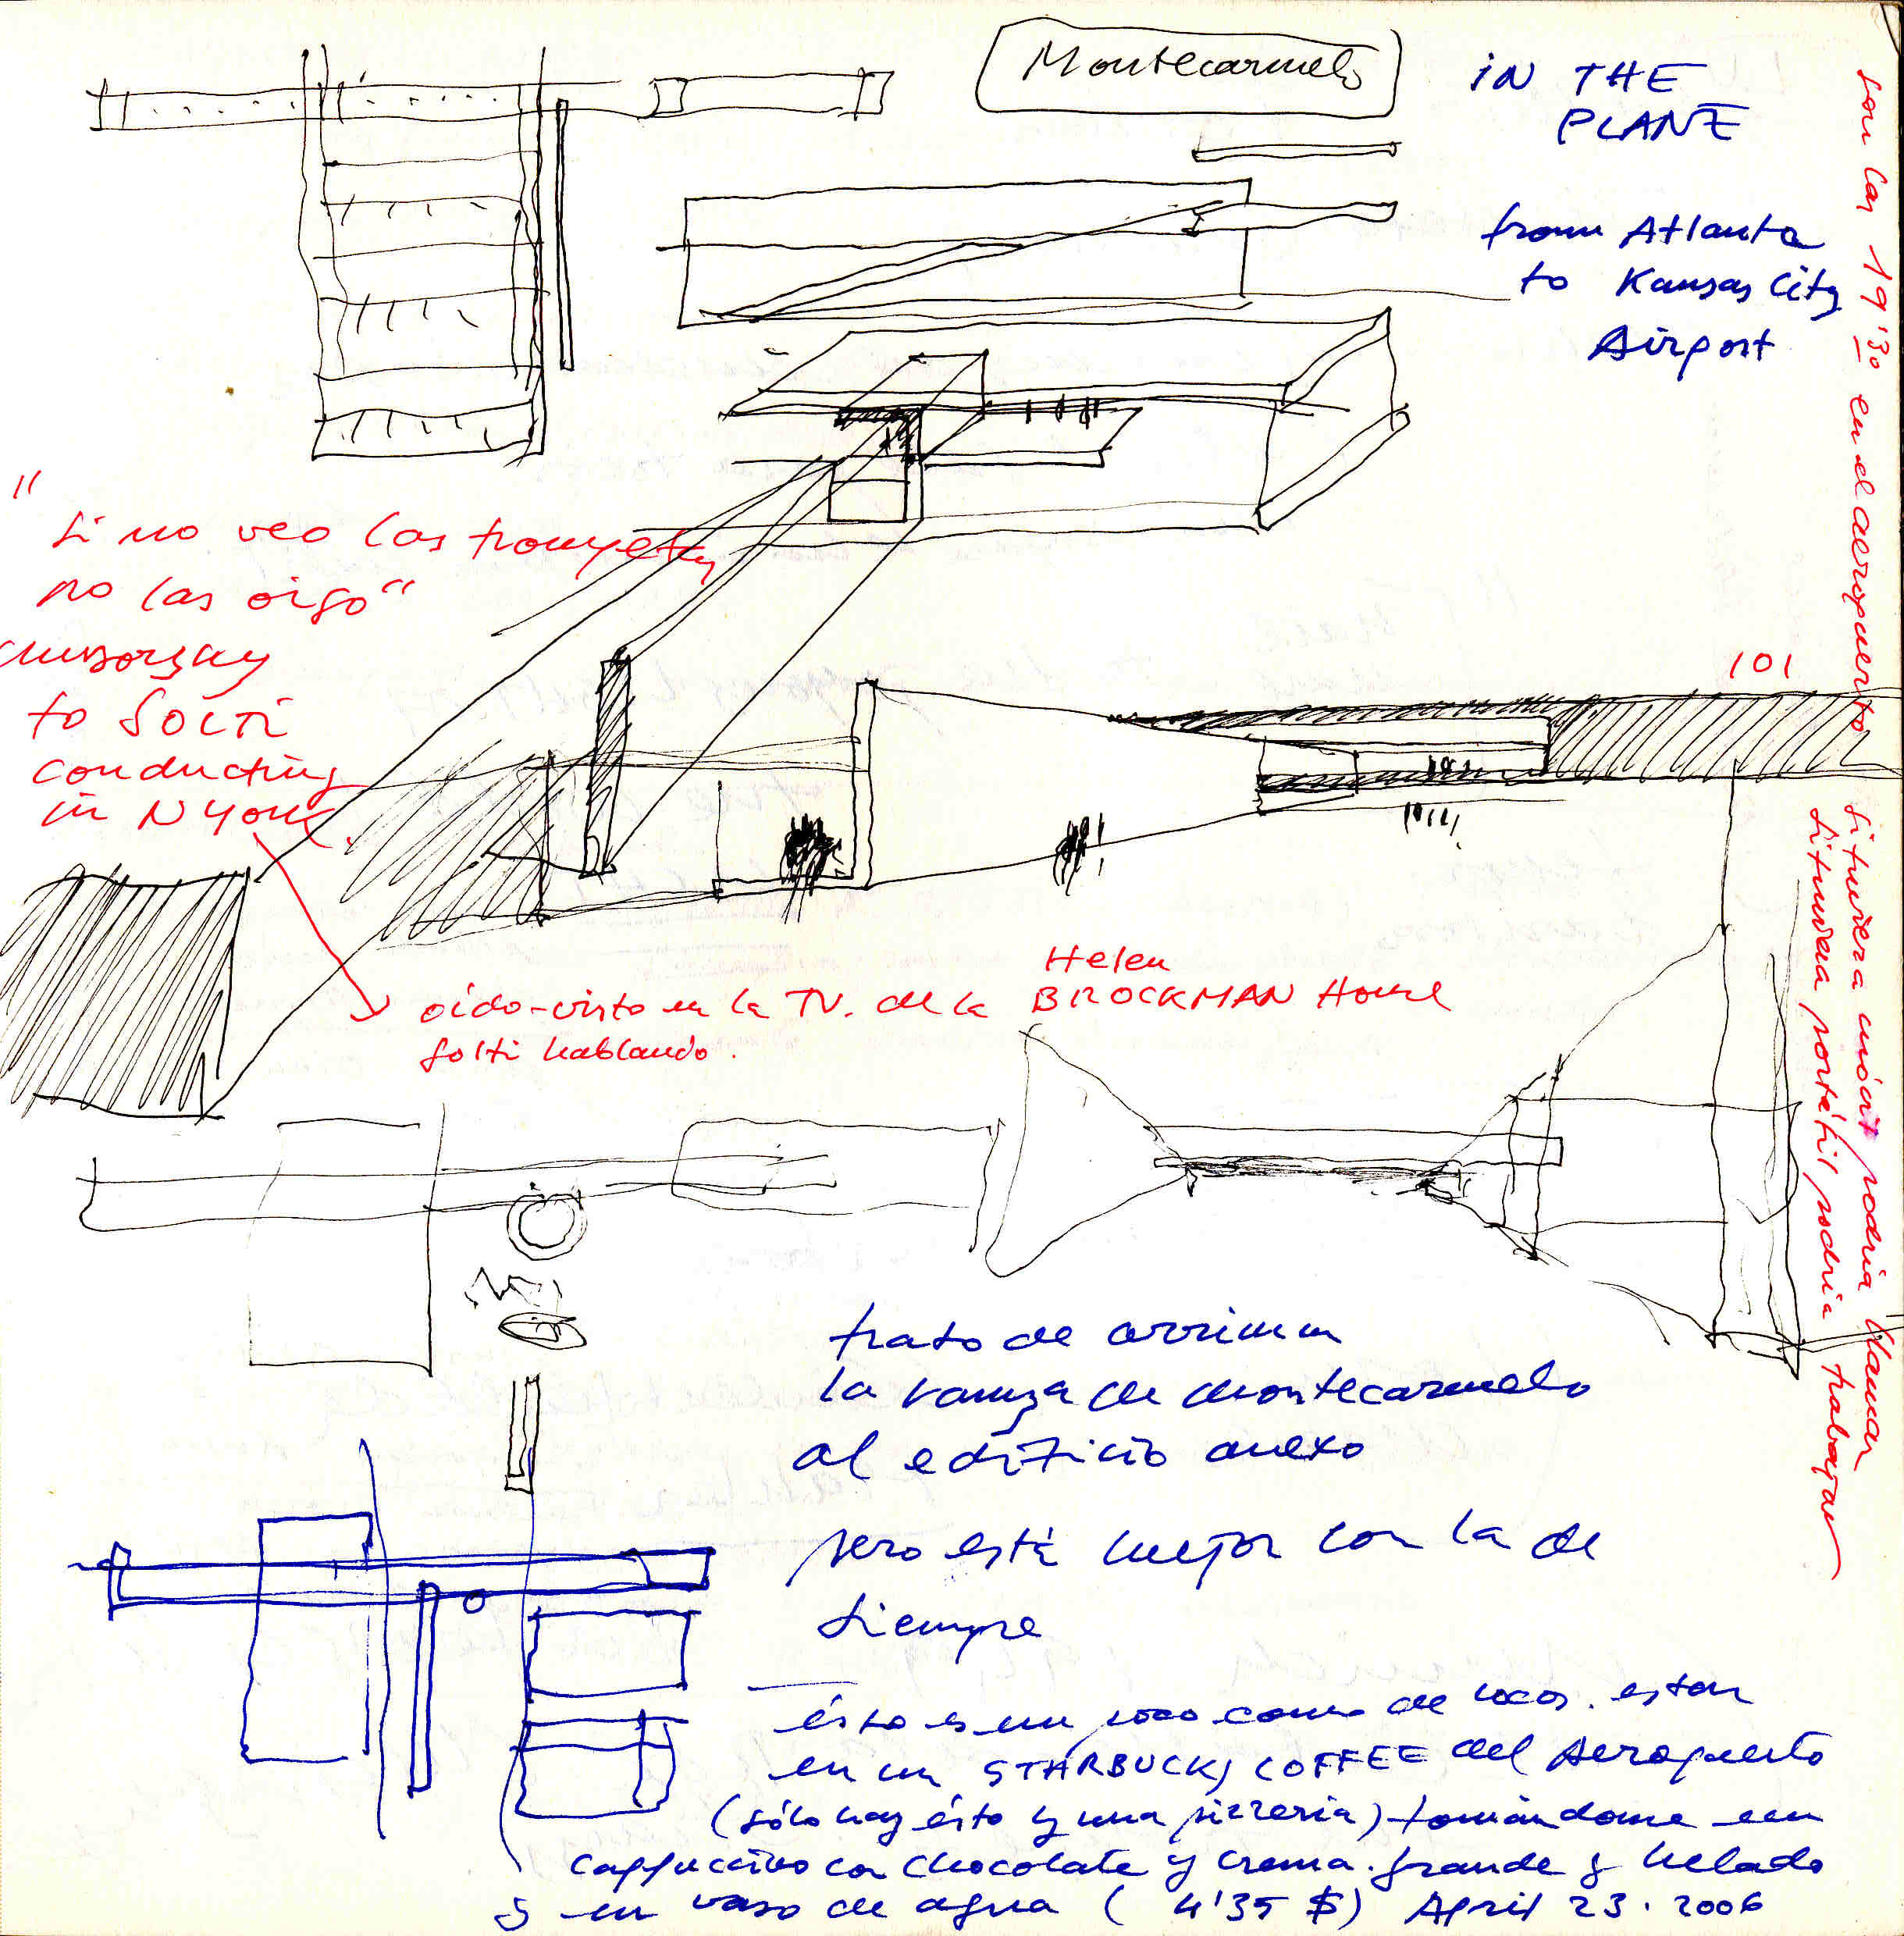 Montecarmelo
IN THE
PLANE
from Atlanta
to Kansas City
Airport
son las 19'30 en el aeropuerto
si tuviera móvil podría llamar
si tuviera portátil podría trabajar
"
si no veo las trompetas
no las oigo"
to Solti
conducting
in N York.
101
oído-visto en la TV. de la Helen BROCKMAN House
Solti hablando.
trato de arrimar
la rampa de Montecarmelo
al edificio anexo
pero está mejor con la de
siempre
ésto es un poco como de locos. estar
en un STARBUCKS COFFEE del Aeropuerto
(sólo hay ésto y una pizzería) tomándome un
cappuccino con chocolate y crema. grande y helado
y un vaso de agua ( 4'35 $) April 23. 2006